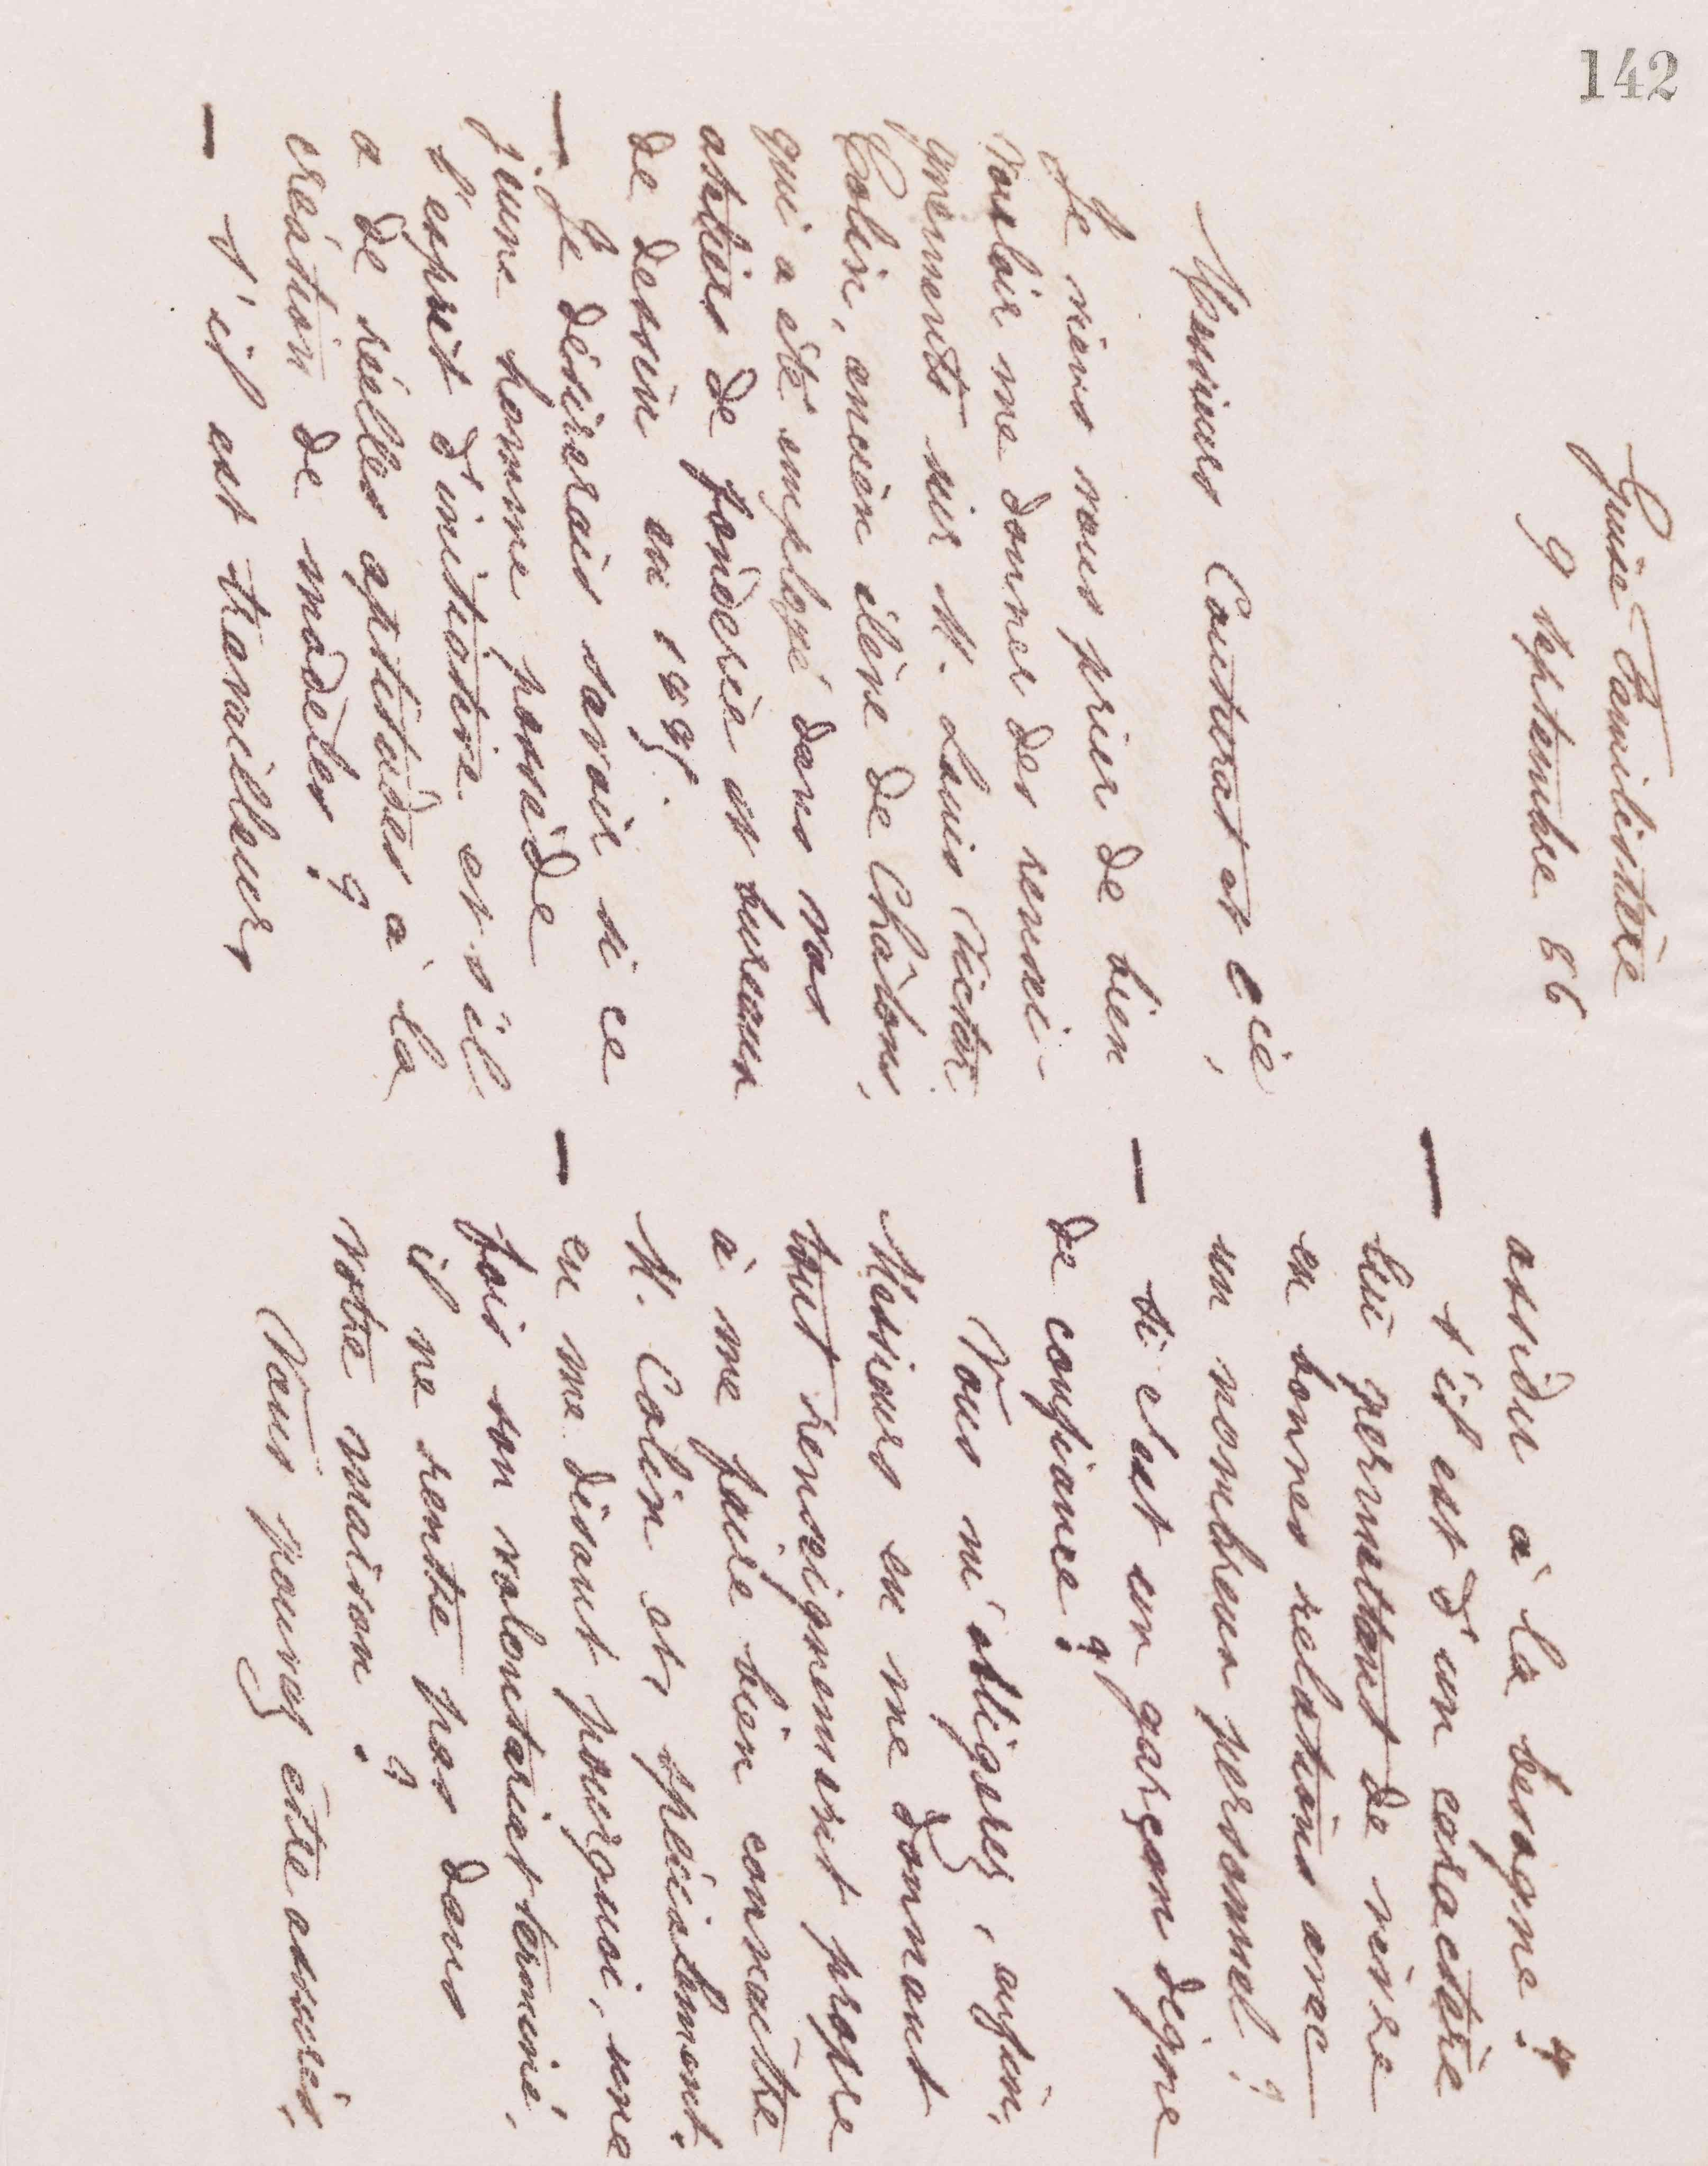 142
Guise Familistère
9 septembre 86
Messieurs Couturat et Cie,
Je viens vous prier de bien
vouloir me donner des rensei-
gnements sur M. Louis Victor
Colin, ancien élève de Châlons,
qui a été employé dans vos
ateliers de fonderie et bureaux
de dessin en
— Je désirerais savoir si ce
jeune homme possède
l'esprit d'initiative et s'il
a de réelles aptitudes à la
création de modèles ?
— s'il est travailleur,
assidu à la besogne ?
— s'il est d'un caractère
lui permettant de vivre
en bonnes relations avec
un nombreux personnel ?
— si c'est un garçon digne
de confiance ?
Vous m'obligerez, enfin,
Messieurs en me donnant
tout renseignement propre
à me faire bien connaître
M. Colin et, spécialement.
— en me disant pourquoi, une
fois son volontariat terminé,
il ne rentre pas dans
votre maison ?
Vous pouvez être assurés,